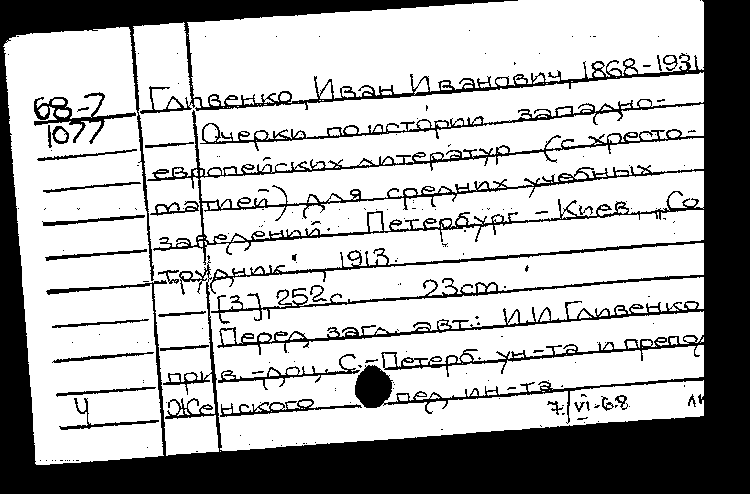 68-7 Гливенко, Иван Иванович, 1868-1931
1077 Очерки по истории западно-
европейских литератур (с хресто-
матией) для средних учебных
заведений. Петербург - Киев, „Со
трудник", 1913.
[3], 252 с. 23 cm.
Перед загл. авт.: И.И. Гливенко
прив.-доц. С.-Петерб. ун-та и препод
Ч Женского пед. ин-та.
7/VI-68